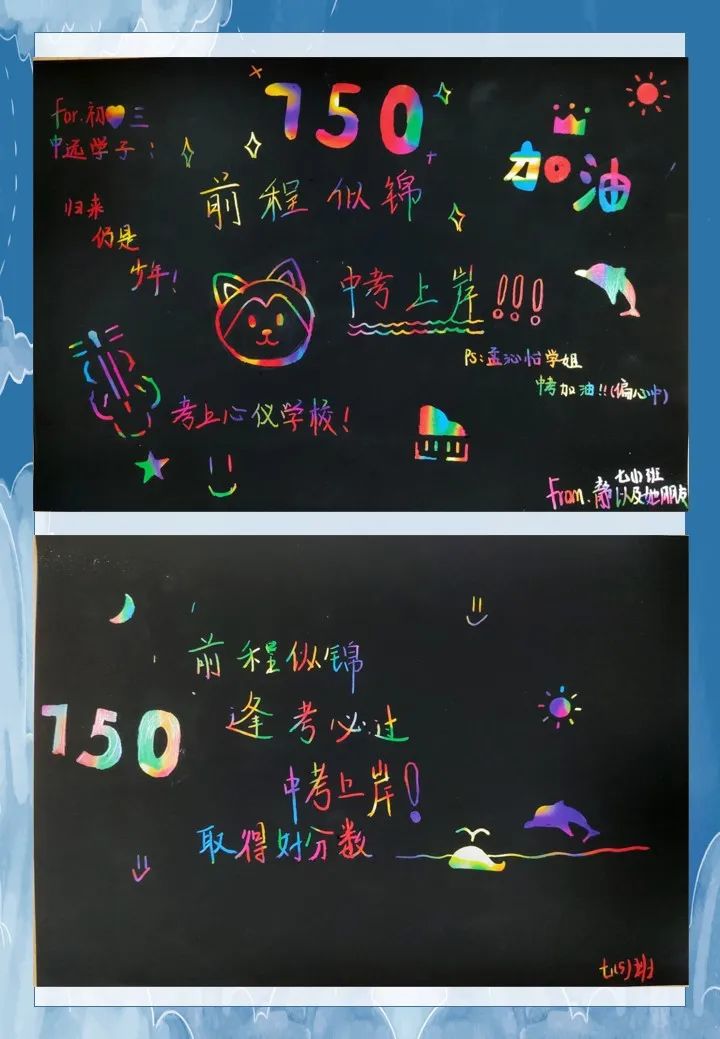 For.初三
中远学子：
750
加油
前程似锦
归来
仍是
少年！
中考上岸!!!
Ps:孟沁怡学姐
中考加油!!(偏心中)
考上心仪学校！
From.静 以及她朋友
前程似锦
750
逢考必过
中考上岸！
取得好分数
七(5)班